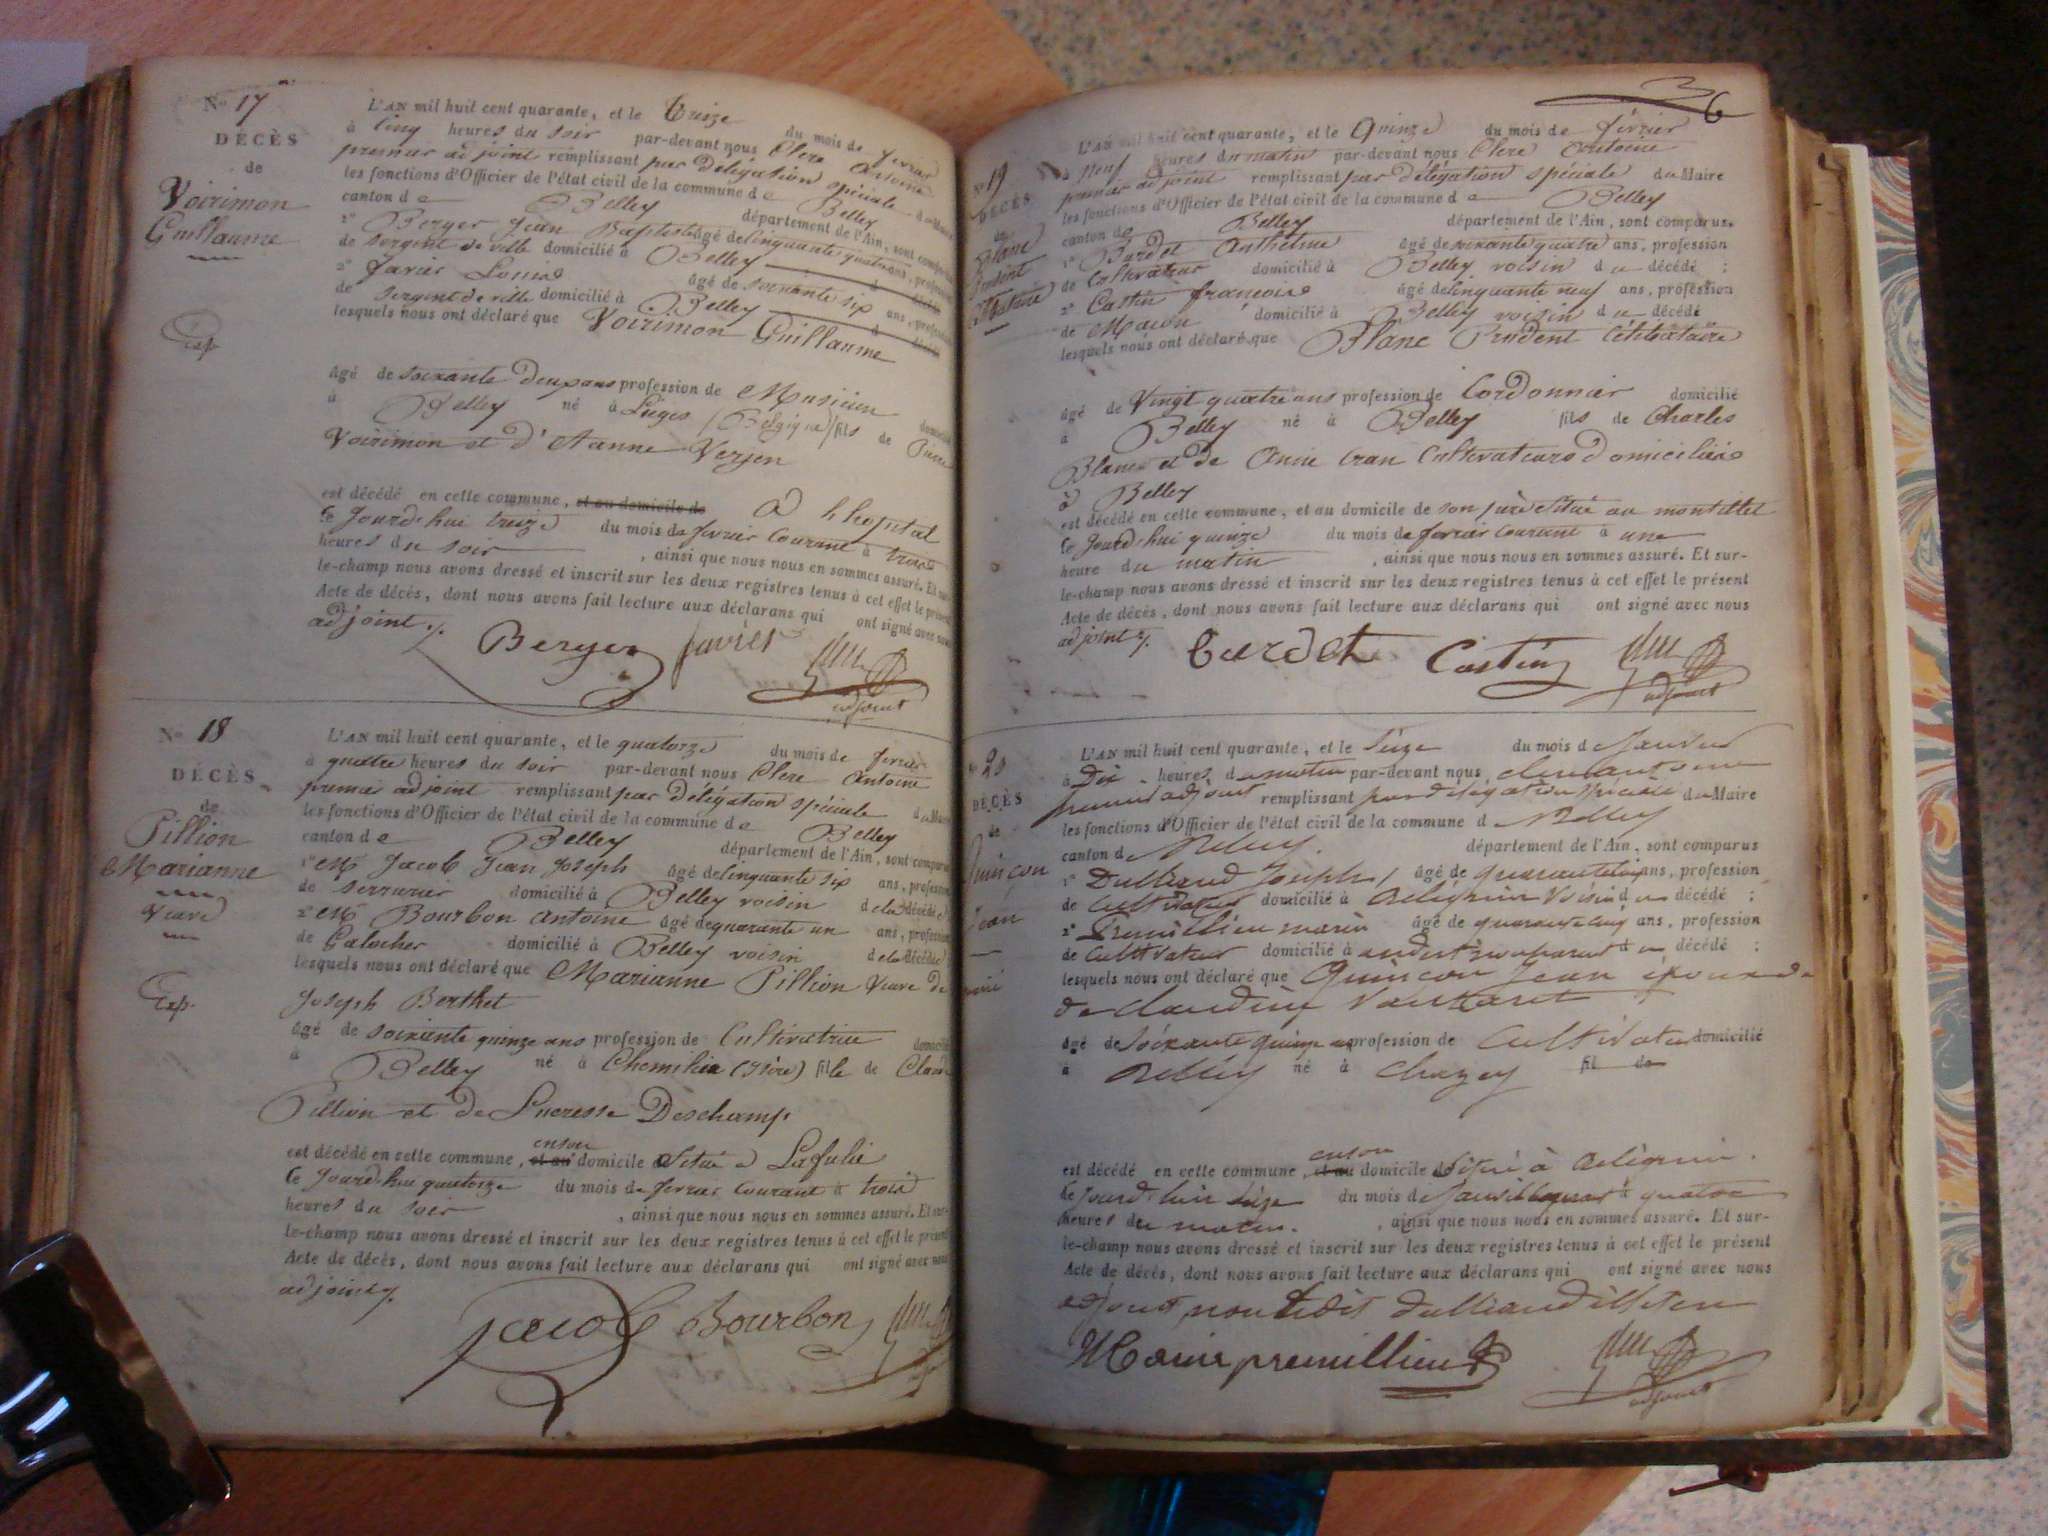 N° 17
DÉCÈS
de
Voirimon
Guillaume
Exp.
L'AN mil huit cent quarante, et le treize du mois de fevrier
à cinq heures du soir par-devant nous Clerc Antoine
premier adjoint remplissant par délégation spéciale du Maire
les fonctions d'Officier de l'état civil de la commune de Belley
canton de Belley département de l'Ain, sont comparus
1° Berger Jean Baptiste âgé de cinquante quatre ans, profession
de sergent de ville domicilié à Belley d décédé
2° Javier Louis âgé de soixante six ans, profession
de sergent de ville domicilié à Belley d décédé
lesquels nous ont déclaré que Voirimon Guillaume
âgé de soixante deux ans profession de Musicien domicilié
à Belley né à Lièges (Belgique) fils de Pierre
Voirimon et d'Anne Verjen
est décédé en cette commune, et au domicile de à l'hopital
Ce Jourd'hui treize du mois de fevrier courant à trois
heures du soir, ainsi que nous nous en sommes assuré. Et sur-
le-champ nous avons dressé et inscrit sur les deux registres tenus à cet effet le présent
Acte de décès, dont nous avons fait lecture aux déclarans qui ont signé avec nous
adjoint ./.
Berger Javier
adjoint
N° 18
DÉCÈS
de
Pillion
Marianne
Veuve
Exp.
L'AN mil huit cent quarante, et le quatorze du mois de fevrier
à quatre heures du soir par-devant nous Clerc Antoine
premier adjoint remplissant par délégation spéciale du Maire
les fonctions d'Officier de l'état civil de la commune de Belley
canton de Belley département de l'Ain, sont comparus
1° M Jacob Jean Joseph âgé de cinquante six ans, profession
de serrurier domicilié à Belley voisin de la décédée
2° M Bourbon Antoine âgé de quarante un ans, profession
de Galocher domicilié à Belley voisin de la décédée
lesquels nous ont déclaré que Marianne Pillion Veuve de
Joseph Berthet
âgé de soixante quinze ans profession de Cultivatrice domicilié
à Belley né à Chemilieu (Isère) fille de Claude
Pillion et de Lucresse Deschamp
est décédé en cette commune, et au en son domicile situé à Lafulie
Ce Jourd'hui quatorze du mois de fevrier courant à trois
heures du soir, ainsi que nous nous en sommes assuré. Et sur-
le-champ nous avons dressé et inscrit sur les deux registres tenus à cet effet le présent
Acte de décès, dont nous avons fait lecture aux déclarans qui ont signé avec nous
adjoint ./.
Jacob Bourbon
36
N° 19
DÉCÈS
de
Blanc
Prudent
L'AN mil huit cent quarante, et le Quinze du mois de février
à Neuf heures du matin par-devant nous Clerc Antoine
premier adjoint remplissant par délégation spéciale du Maire
les fonctions d'Officier de l'état civil de la commune de Belley
canton de Belley département de l'Ain, sont comparus
1° Burdet Anthelme âgé de soixante quatre ans, profession
de Cultivateur domicilié à Belley voisin du décédé ;
2° Castin françois âgé de cinquante neuf ans, profession
de Macon domicilié à Belley voisin du décédé
lesquels nous ont déclaré que Blanc Prudent Célibataire
âgé de Vingt quatre ans profession de Cordonnier domicilié
à Belley né à Belley fils de Charles
Blanc et de Anne Cran Cultivateurs domiciliés
à Belley
est décédé en cette commune, et au domicile de son père situé au montillet
Ce Jourd'hui quinze du mois de fevrier courant à une
heure du matin, ainsi que nous nous en sommes assuré. Et sur-
le-champ nous avons dressé et inscrit sur les deux registres tenus à cet effet le présent
Acte de décès, dont nous avons fait lecture aux déclarans qui ont signé avec nous
adjoint ./.
Burdet Castin
adjoint
20
DÉCÈS
de
Quinçon
Jean
L'AN mil huit cent quarante, et le seize du mois de
à Dix heures du matin par-devant nous Clerc Antoine
premier adjoint remplissant par délégation spéciale du Maire
les fonctions d'Officier de l'état civil de la commune d Belley
canton de Belley département de l'Ain, sont comparus
1° Dulliaud Joseph âgé de ans, profession
de Cultivateur domicilié à voisin du décédé ;
2° Premillieu marin âgé de quarante cinq ans, profession
de Cultivateur domicilié à du décédé ;
lesquels nous ont déclaré que Quinçon Jean époux de
de Claudine
âgé de soixante quinze ans profession de Cultivateur domicilié
à Belley né à Chazey fil de
est décédé en cette commune, et au en son domicile situé à
Ce Jourd'hui seize du mois de à quatre
heures du matin, ainsi que nous nous en sommes assuré. Et sur-
le-champ nous avons dressé et inscrit sur les deux registres tenus à cet effet le présent
Acte de décès, dont nous avons fait lecture aux déclarans qui ont signé avec nous
adjoint non ledit Dulliaud illiteré
Marin premillieu
adjoint